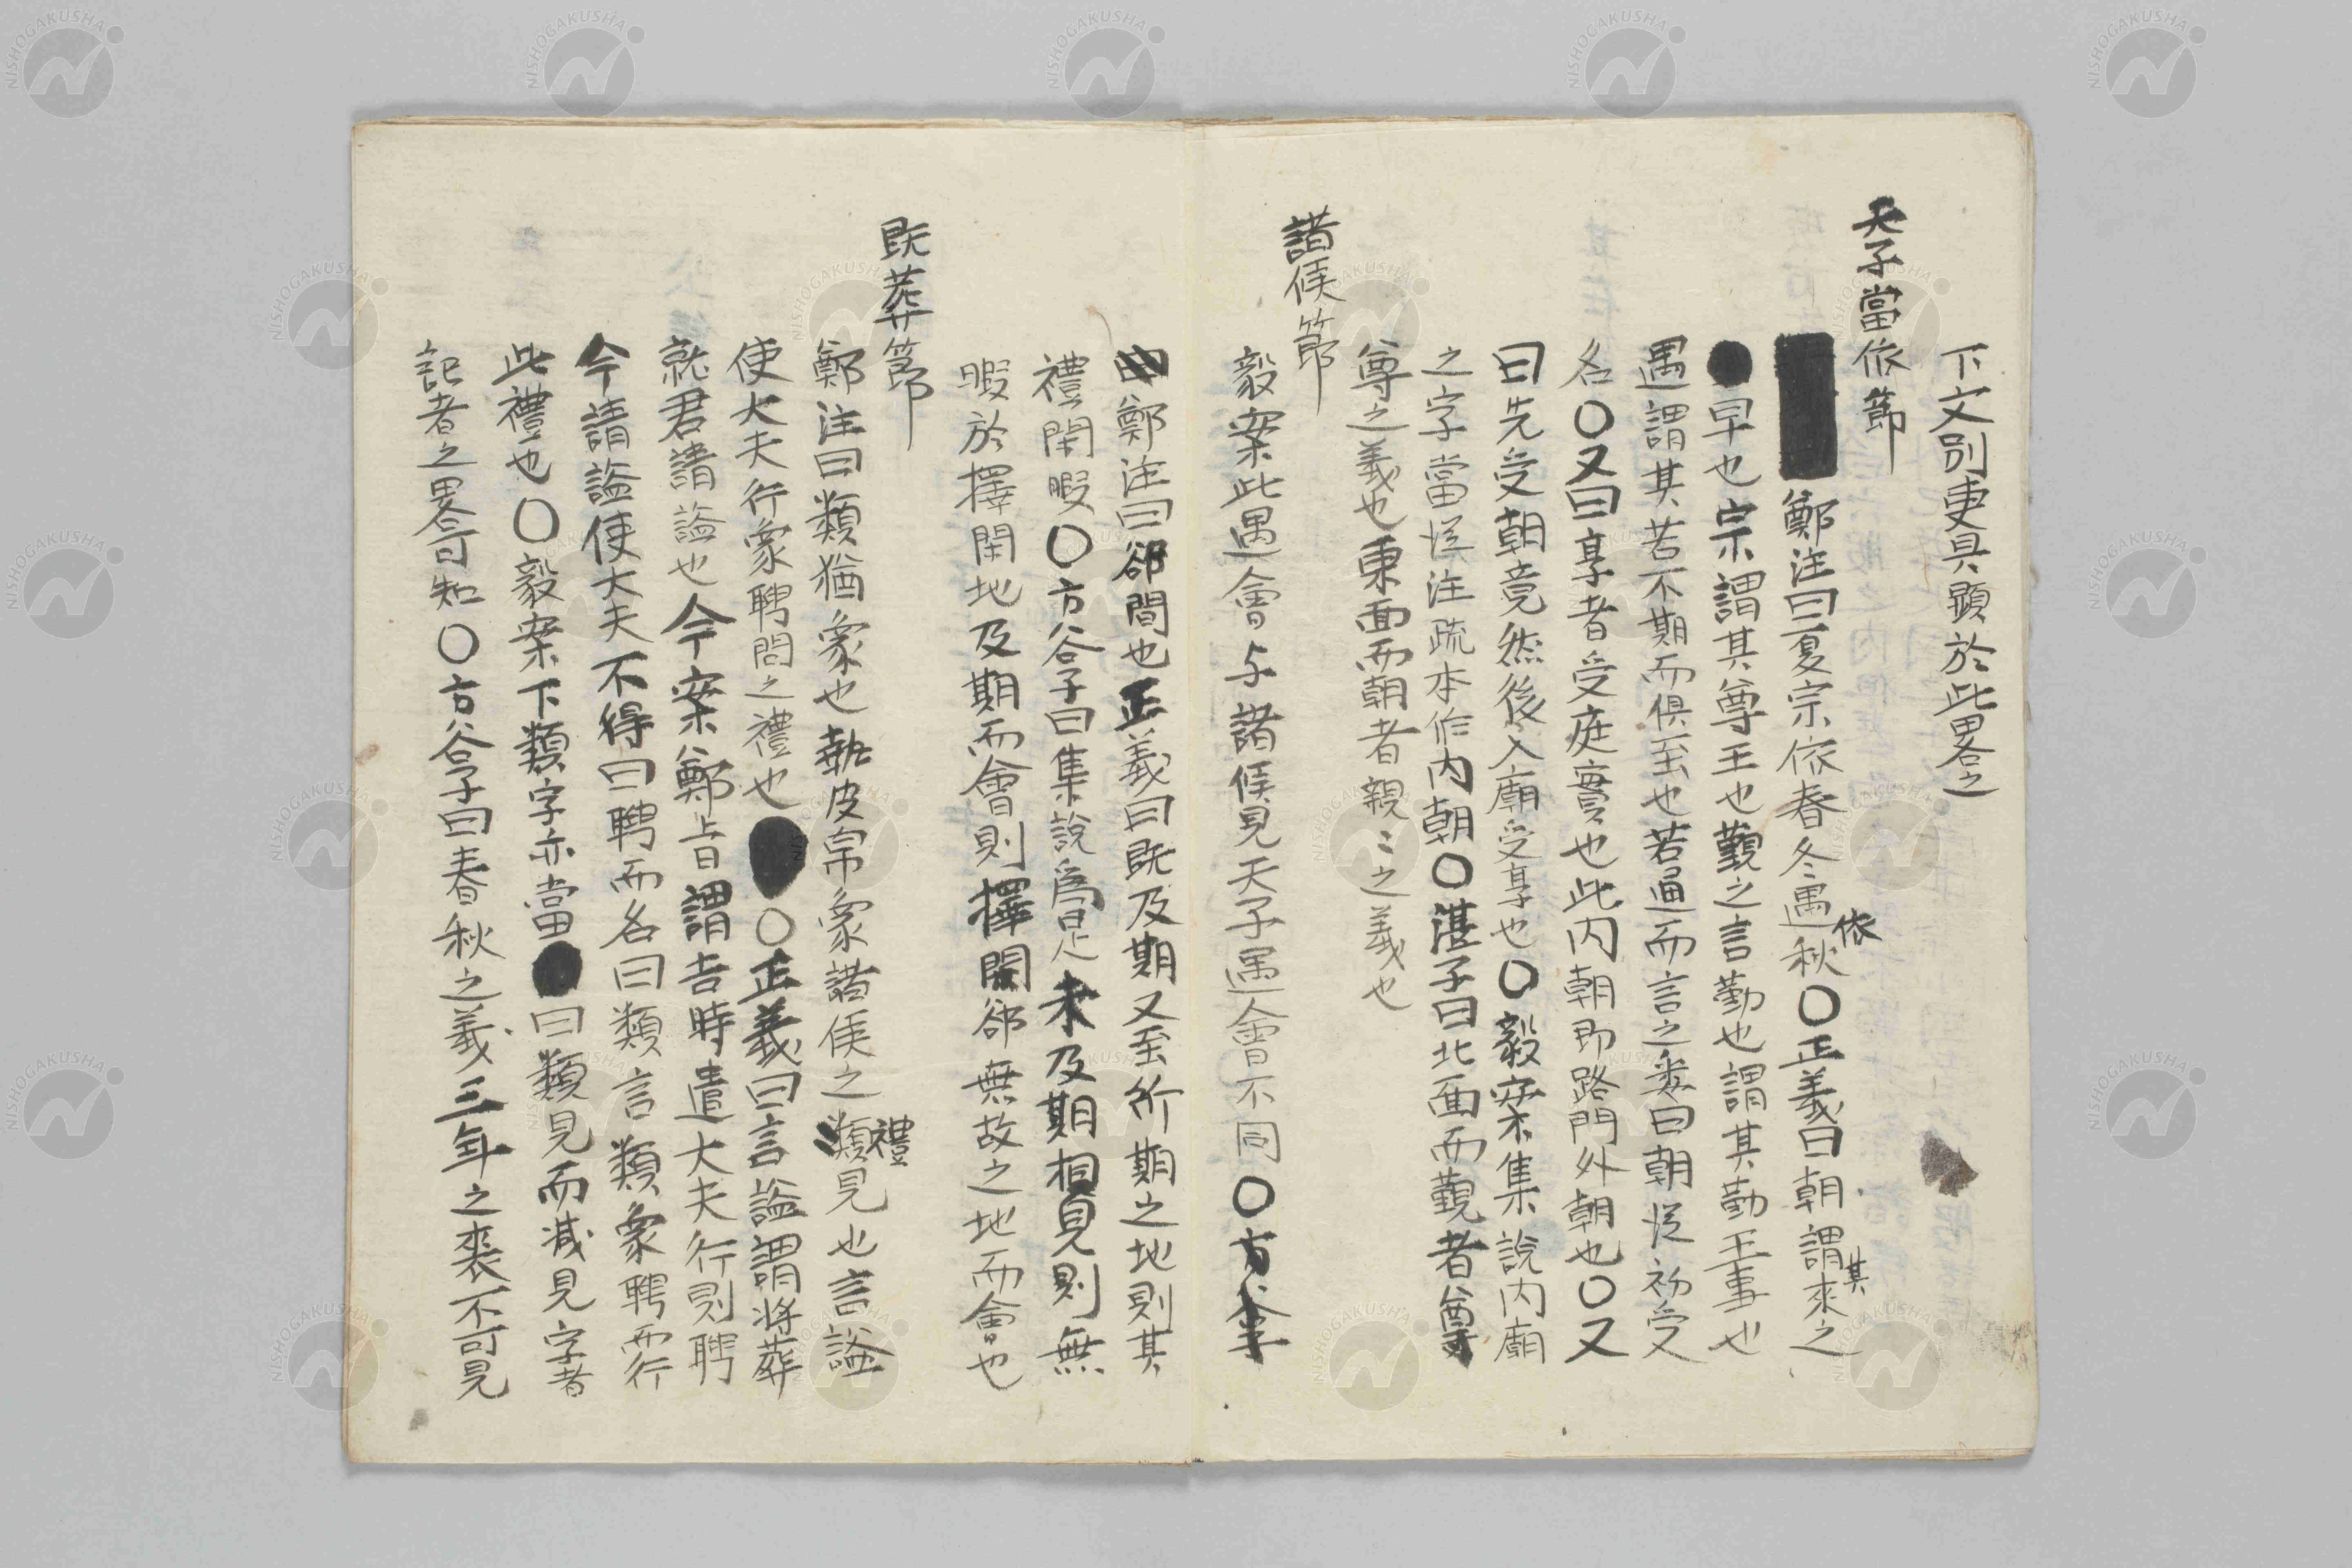 下文別更具顕於此畧之
天子當依節
鄭注曰夏宗依春冬遇依秋〇正義曰朝謂其來之
早也宗謂其尊王也覲之言勤也謂其勤王事也
遇謂其若不期而俱至也若通而言之悉曰朝從初受
名〇又曰享者受庭實也此内朝即路門外朝也〇又
曰先受朝竟然後入廟受享也〇毅案集説内廟
之字當從注疏本作内朝〇湛子曰北面而覲者尊
尊之義也東面而朝者親〻之義也
諸侯節
毅案此遇會与諸侯見天子遇會不同〇方谷
鄭注曰郤間也正義曰既及期又至所期之地則其
禮閑暇〇方谷子曰集説為是未及期相見則無
暇於擇閑地及期而會則擇閑郤無故之地而會也
既葬節
鄭注曰類猶象也執皮帛象諸侯之禮見也言謚
使大夫行象聘問之禮也〇正義曰言謚謂将葬
就君請謚也今案鄭旨謂吉時遣大夫行則聘
今請謚使大夫不得曰聘而名曰類言類象聘而行
此禮也〇毅案下類字亦當曰類見而减見字者
記者之畧可知〇方谷子曰春秋之義三年之喪不可見